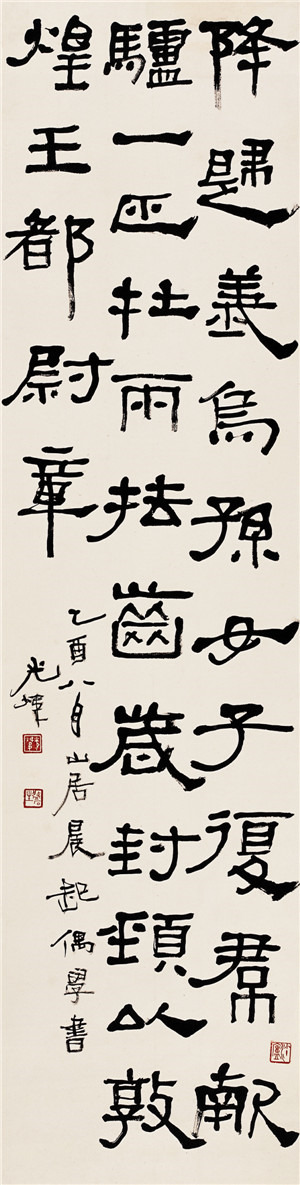 降歸義烏孫女子復帬獻
驢一匹牡兩抾齒歲封頸以敦
煌王都尉章
乙酉八月山居晨起偶學書
光煒